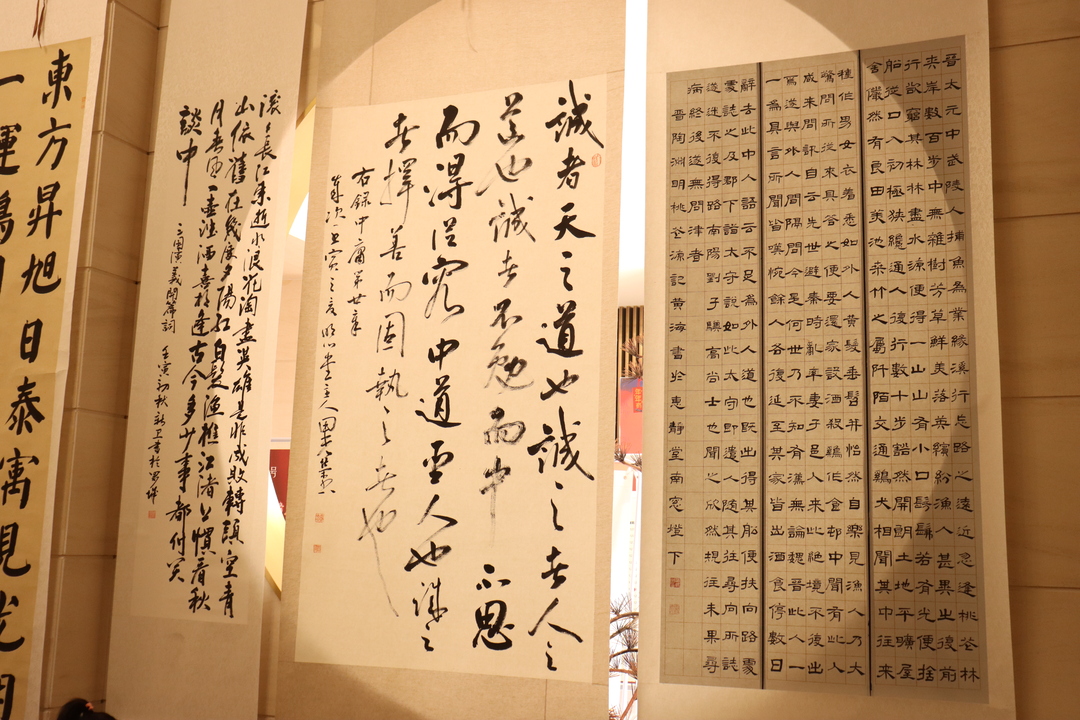 晋太元中武陵人捕魚為業緣溪行忘路之遠近忽逢桃花林
夾岸數百步中無雜樹芳草鮮美落英繽紛漁人甚異之復前
行欲窮其林林盡水源便得一山山有小口髣髴若有光便捨
船從口入初極狹纔通人復行數十步豁然開朗土地平曠屋
舍儼然有良田美池桑竹之屬阡陌交通鷄犬相聞其中往來
種作男女衣着悉如外人黄髮垂髫并怡然自樂見漁人乃大
驚問所從來具答之便要還家設酒殺鷄作食邨中聞有此人
咸來問訊自云先世避秦時亂率妻子邑人來此絶境不復出
焉遂與外人間隔問今是何世乃不知有漢無論魏晋此人一
一為具言所聞皆嘆惋餘人各復延至其家皆出酒食停數日
辭去此中人語云不足為外人道也既出得其船便扶向路處
處誌之及郡下詣太守説如此太守即遣人隨其往尋向所誌
遂迷不復得路南陽劉子驥高尚士也聞之欣然規往未果尋
病終後遂無問津者
晋陶淵明桃花源記黄海書於惠靜堂南窓燈下
誠者天之道也誠之者人之
道也誠者不勉而中不思
而得從容中道聖人也誠之
者擇善而固執之者也
右録中庸第廿章
歲次壬寅之夏
滾滾長江東逝水浪花淘盡英雄是非成敗轉頭空青
山依舊在幾度夕陽紅白髮漁樵江渚上慣看秋
月春風一壺濁酒喜相逢古今多少事都付笑
談中
三國演義開篇詞 壬寅初秋
東方昇旭日泰寓現光明
一運鴻